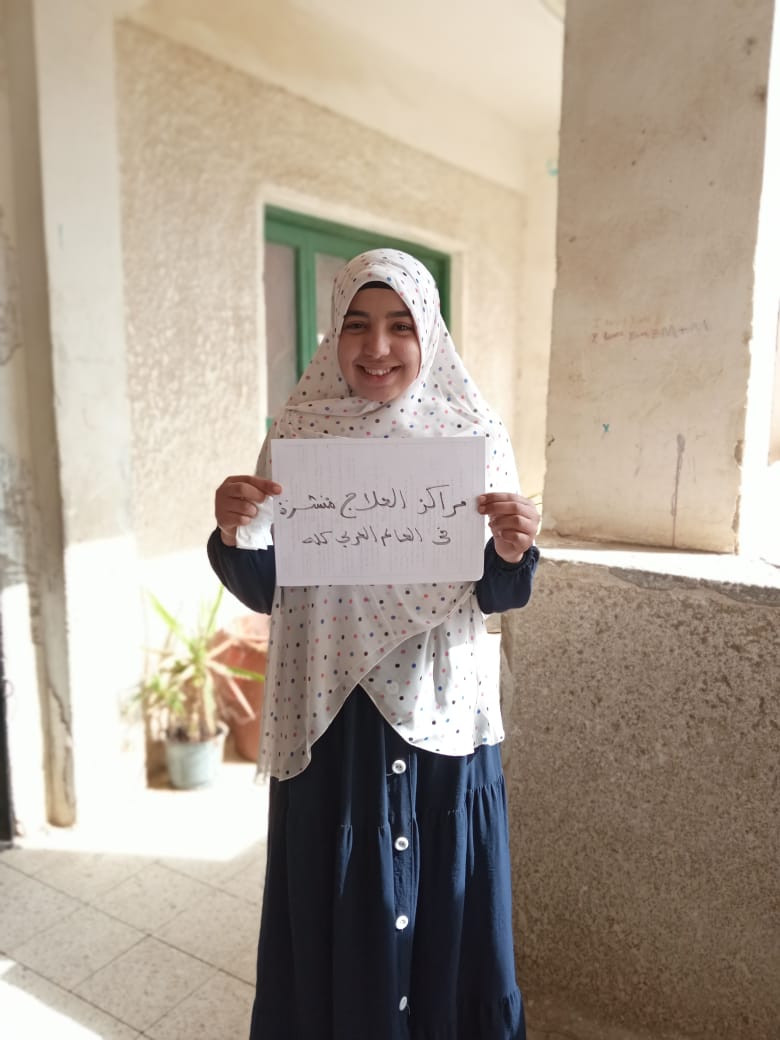 مراكز العلاج منشرة
في العالم العربي كله